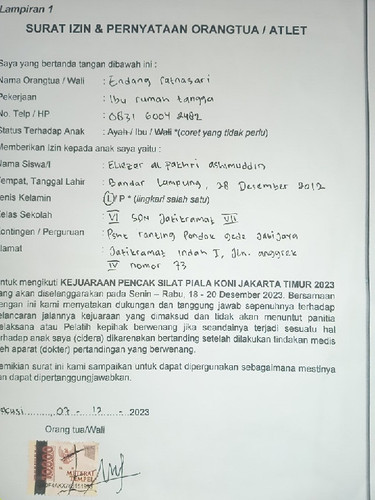 Lampiran 1
SURAT IZIN & PERNYATAAN ORANGTUA / ATLET
Saya yang bertanda tangan dibawah ini :
Nama Orangtua / Wali : Endang Ratnasari
Pekerjaan : Ibu rumah tangga
No. Telp / HP : 0831 6004 2482
Status Terhadap Anak : Ayah / Ibu / Wali *(coret yang tidak perlu)
Memberikan Izin kepada anak saya yaitu :
Nama Siswa/I : Eliezar al fakhri
Tempat, Tanggal Lahir : Bandar Lampung, 28 Desember 2012
Jenis Kelamin : L / P * (lingkari salah satu)
Kelas Sekolah : VI SDN Jatikramat VII
Kontingen / Perguruan : ranting Pondok gede
Alamat : Jatikramat Indah I, Jln. anggrek
IV nomor 73
Untuk mengikuti KEJUARAAN PENCAK SILAT PIALA KONI JAKARTA TIMUR 2023
yang akan diselenggarakan pada Senin – Rabu, 18 - 20 Desember 2023. Bersamaan
dengan ini kami menyatakan dukungan dan tanggung jawab sepenuhnya terhadap
kelancaran jalannya kejuaraan yang dimaksud dan tidak akan menuntut panitia
pelaksana atau Pelatih kepihak berwenang jika seandainya terjadi sesuatu hal
terhadap anak saya (cidera) dikarenakan bertanding setelah dilakukan tindakan medis
oleh aparat (dokter) pertandingan yang berwenang.
Demikian surat ini kami sampaikan untuk dapat dipergunakan sebagaimana mestinya
dan dapat dipertanggungjawabkan.
07 - 12 - 2023
Orang tua/Wali
METERAI
TEMPEL